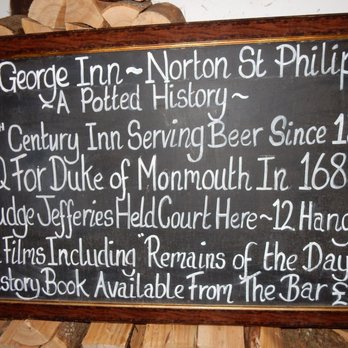 George Inn ~ Norton St Philip
~ A Potted History ~
" Century Inn Serving Beer Since 1
Q For Duke of Monmouth In 168
udge Jefferies Held Court Here ~ 12 Hang
Films Including "Remains of the Day
story Book Available From The Bar £